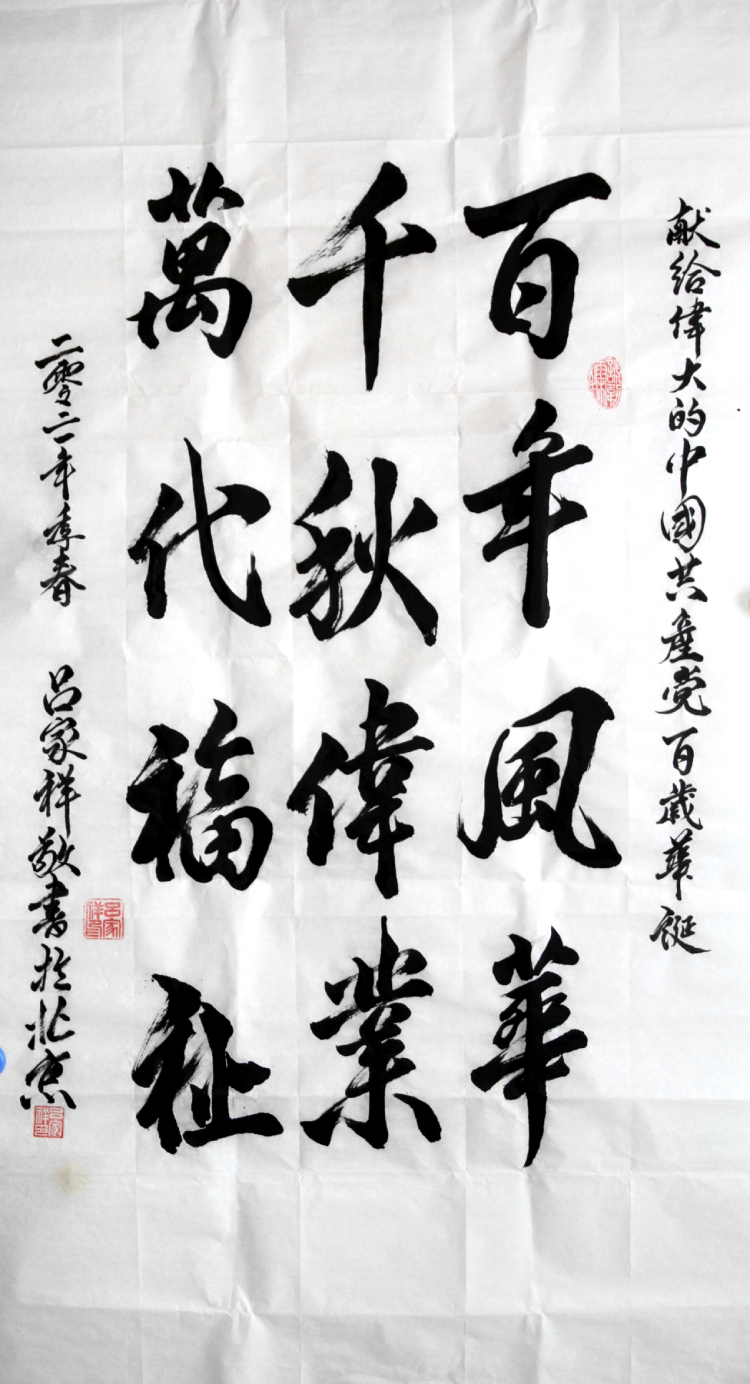 献给偉大的中國共產党百歲華誕
百年風華
千秋偉業
萬代福祉
二零二一年季春 吕家祥敬書於北京